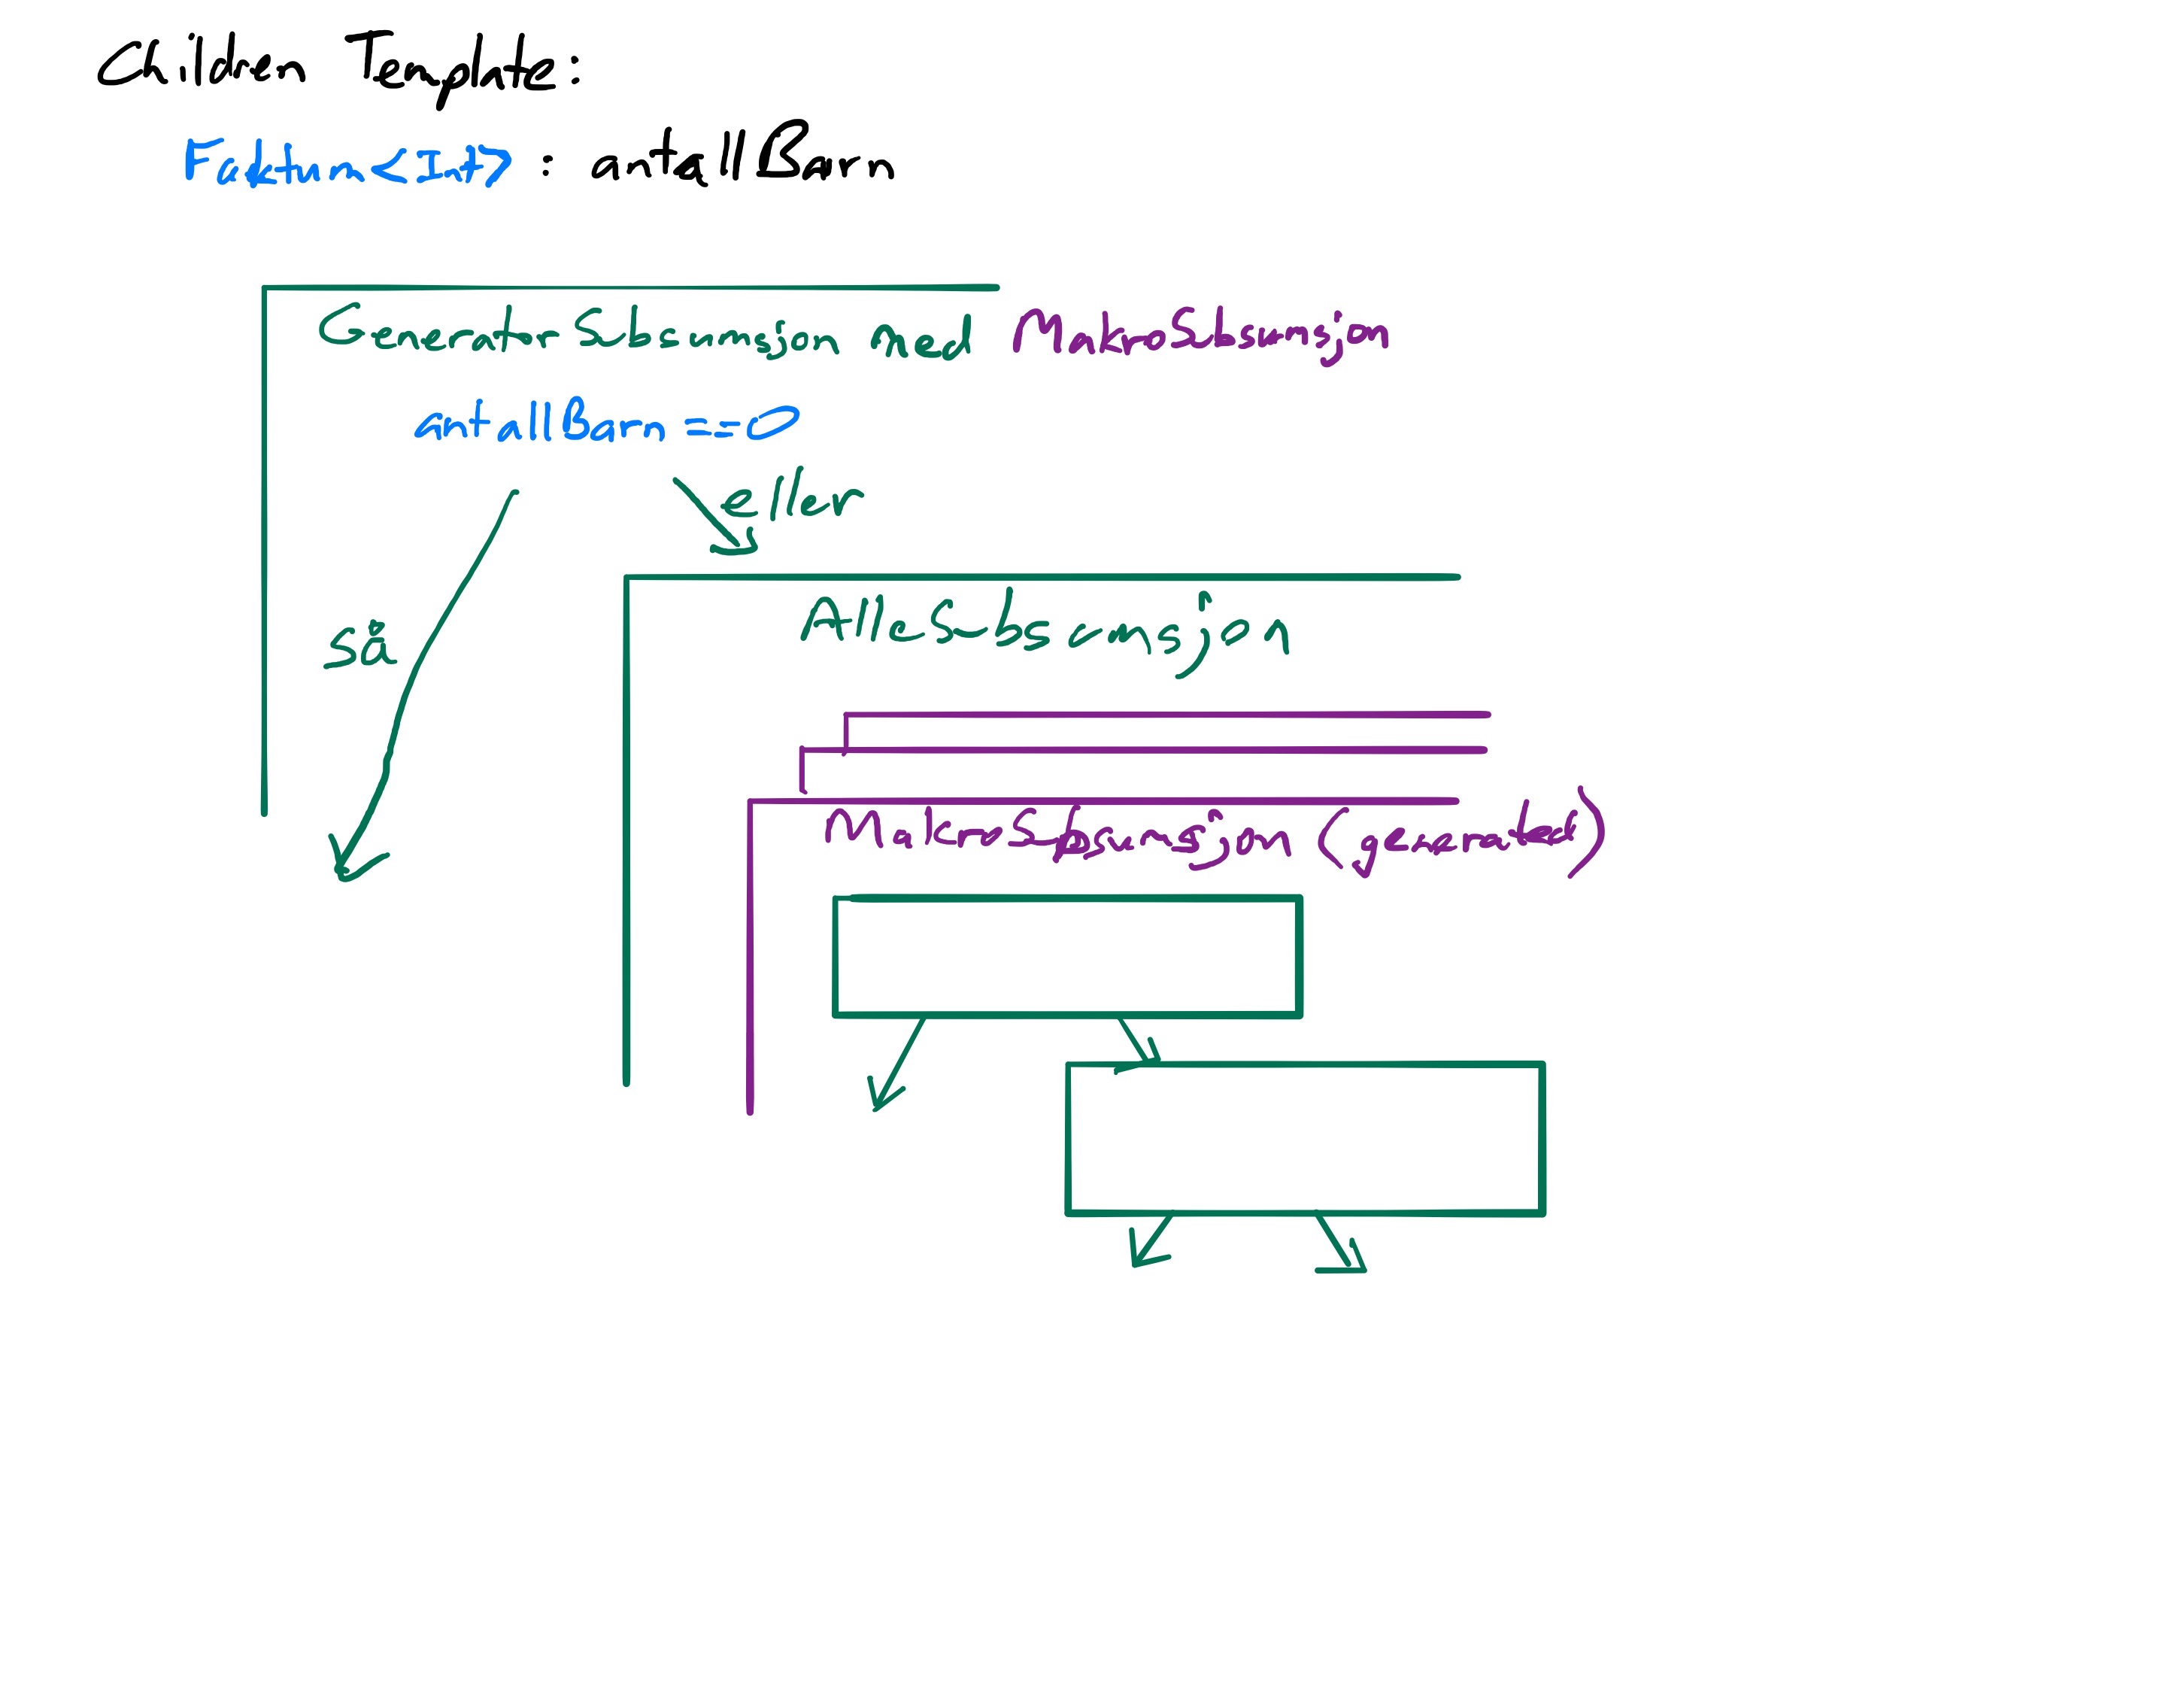 Children Template:
Faktum<Int> : antallBarn
GeneratorSubsumsjon med MakroSubsumsjon
antallBarn == 0
eller
så
AlleSubsumsjon
MakroSubsumsjon (generated)